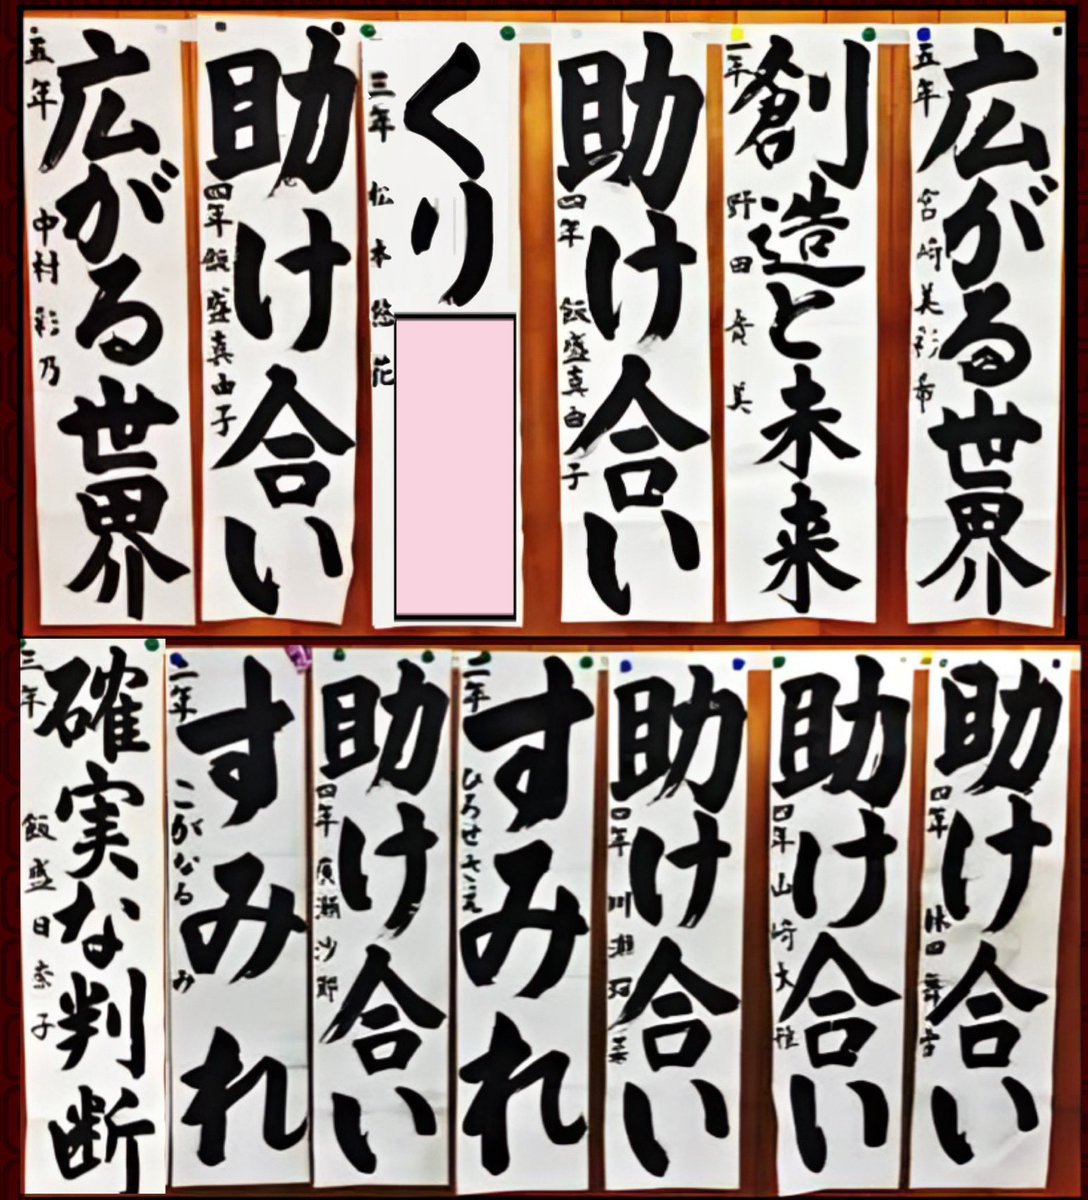 広がる世界
五年 宮崎美彩希
創造と未来
一年 野田 貴美
助け合い
四年 飯盛真由子
くり
三年 松本 悠花
助け合い
四年 飯盛真由子
広がる世界
五年 中村彩乃
助け合い
四年
助け合い
四年 山崎大雅
助け合い
四年 川瀬
すみれ
二年 ひろせさえ
助け合い
四年 廣瀬沙耶
すみれ
二年 こがなるみ
確実な判断
三年 飯盛日奈子